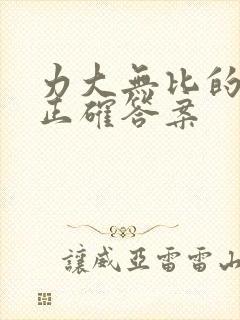 力大無比的
正確答案
讓威亞雷雷山